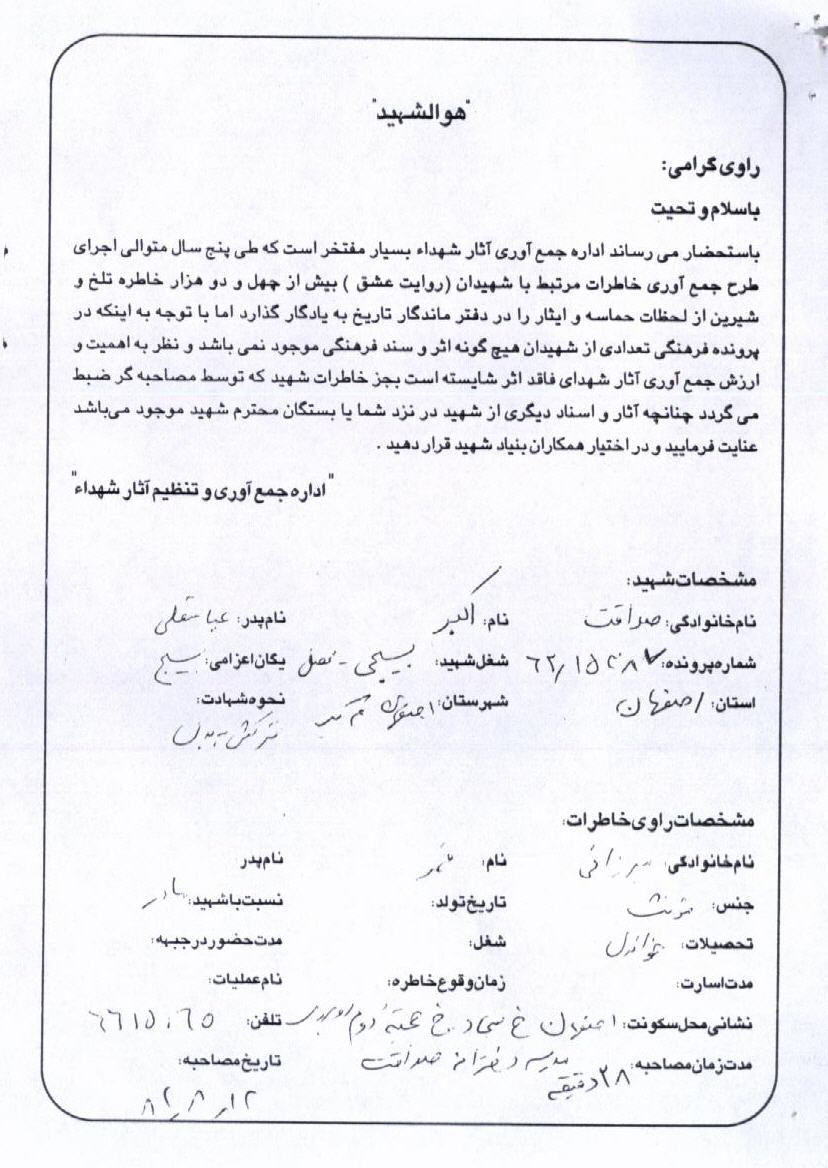 "هوالشهید"
راوی گرامی:
باسلام و تحیت
باستحضار می رساند اداره جمع آوری آثار شهداء بسیار مفتخر است که طی پنج سال متوالی اجرای
طرح جمع آوری خاطرات مرتبط با شهیدان (روایت عشق ) بیش از چهل و دو هزار خاطره تلخ و
شیرین از لحظات حماسه و ایثار را در دفتر ماندگار تاریخ به یادگار گذارد اما با توجه به اینکه در
پرونده فرهنگی تعدادی از شهیدان هیچ گونه اثر و سند فرهنگی موجود نمی باشد و نظر به اهمیت و
ارزش جمع آوری آثار شهدای فاقد اثر شایسته است بجز خاطرات شهید که توسط مصاحبه گر ضبط
می گردد چنانچه آثار و اسناد دیگری از شهید در نزد شما یا بستگان محترم شهید موجود می‌باشد
عنایت فرمایید و در اختیار همکاران بنیاد شهید قرار دهید .
"اداره جمع آوری و تنظیم آثار شهداء"
مشخصات شهید:
نام‌خانوادگی: صداقت نام: اکبر نام‌پدر: عباسقلی
شماره‌پرونده: شغل‌شهید: بسیجی - محصل یگان‌اعزامی: بسیج
استان: اصفهان شهرستان: اصفهان نحوه‌شهادت:
مشخصات راوی خاطرات:
نام‌خانوادگی: میرزائی نام: نام‌پدر
جنس: مونث تاریخ‌تولد: نسبت‌باشهید: مادر
تحصیلات: شغل: مدت‌حضوردرجبهه:
مدت‌اسارت: زمان‌وقوع‌خاطره: نام‌عملیات:
نشانی‌محل‌سکونت: اصفهان خ سجاد خ دوم روبروی تلفن:
مدت‌زمان‌مصاحبه: ۳۸ دقیقه مدرسه دخترانه صداقت تاریخ‌مصاحبه:
۸۲/۸/۱۲